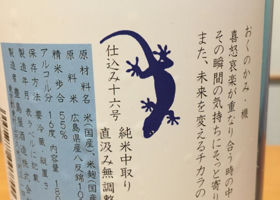 おくのかみ・機
喜怒哀楽が重なり合う時の中
その瞬間の気持ちにそっと寄り
また、未来を変えるチカラの
純米中取り
直汲み無調整
仕込み十六号
原材料名 米(国産)、米麹(国産
原料米 広島県産八反錦10
精米歩合 55%
アルコール分 16度 内容量 18
保存方法 要冷蔵
製造年月
製造者 豊島屋酒造株式会